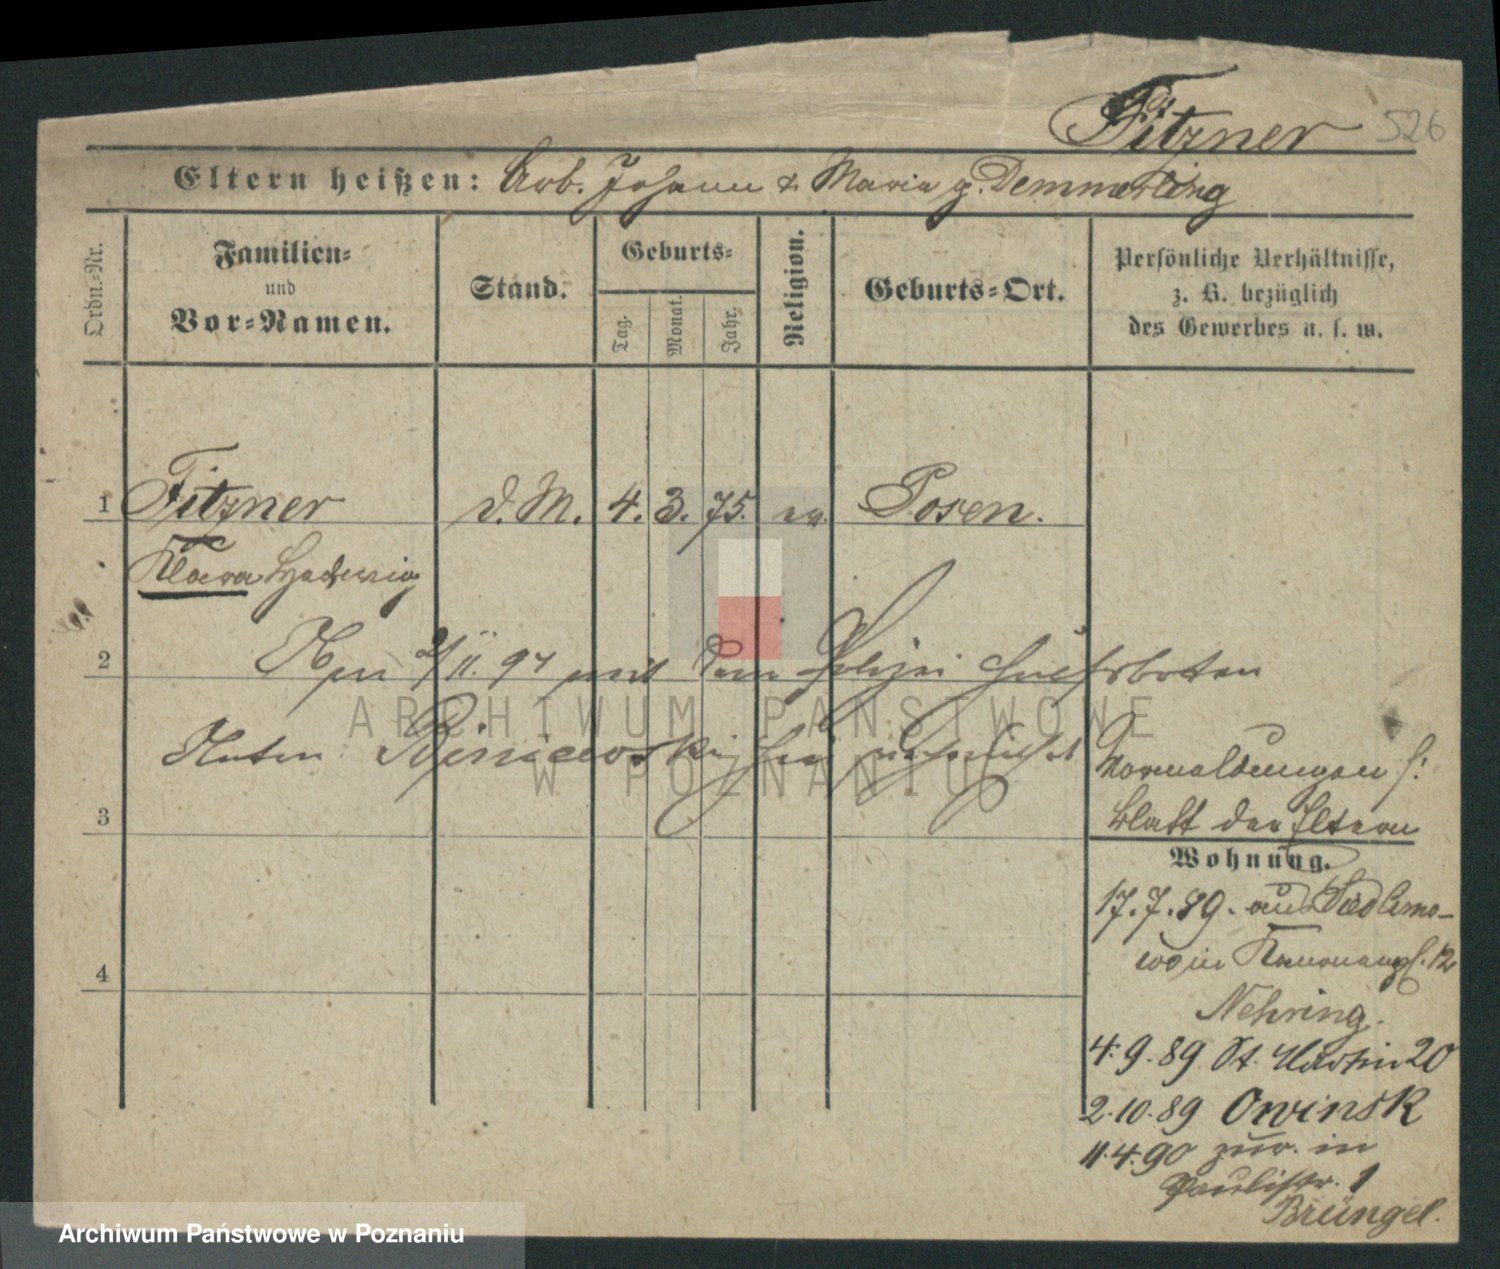 Fitzner 526
Eltern heißen: Arb. Johann & Maria g. Demmerling
Ordn.-Nr.
Familien-
und
Vor-Namen.
Stand.
Geburts-
Tag.
Monat.
Jahr.
Religion.
Geburts-Ort.
Persönliche Verhältnisse,
z. B. bezüglich
des Gewerbes u. s. w.
1 Fitzner d. M. 4. 3. 75. ev. Posen.
Klara Hedwig
2
11. 97 mit dem Polizei
3
blatt der Eltern
Wohnung.
17. 7. 89. aus
in 12
Nehring.
4. 9. 89 St. Martin 20
2. 10. 89 Owinsk
11. 4. 90 zur. in
Paulistr. 1
Brüngel.
4
ARCHIWUM PAŃSTWOWE
W POZNANIU
Archiwum Państwowe w Poznaniu